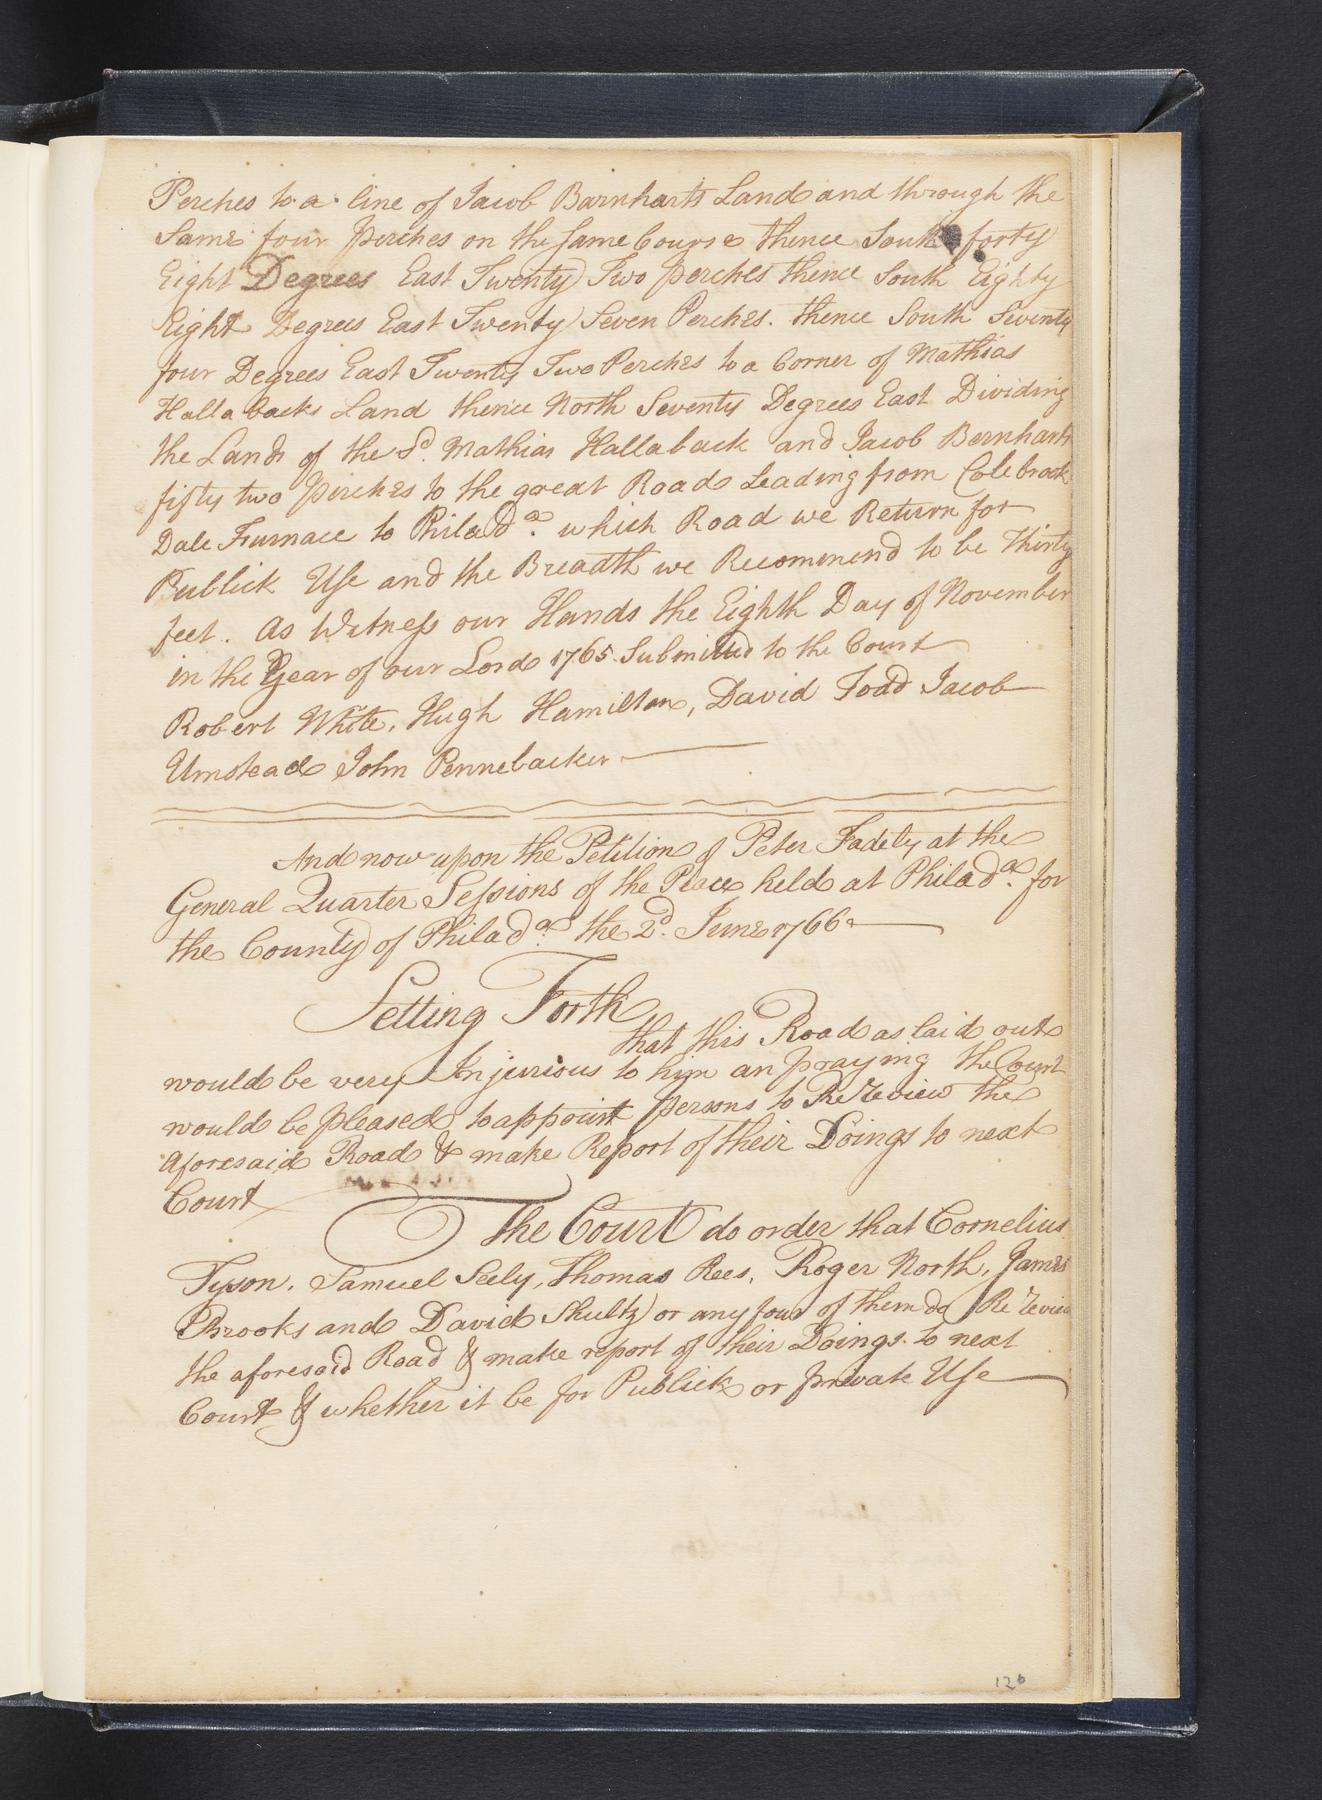 Perches to a line of Jacob Barnharts Land and through the
Same four perches on the same Course thence South forty
Eight Degrees East Twenty Two perches thence South Eighty
Eight Degrees East Twenty Seven Perches. thence South Seventy
four Degrees East Twenty Two Perches to a Corner of Mathias
Hallabacks Land thence North Seventy Degrees East Dividing
the Lands of the Sd. Mathias Hallaback and Jacob Bernharts
fifty two perches to the great Road Leading from Colebrook
Dale Furnace to Philada. which Road we Return for
Publick Use and the Breadth we Recommend to be Thirty
feet. As Witness our Hands the Eighth Day of November
in the Year of our Lord 1765. Submitted to the Court
Robert White, Hugh Hamilton, David Todd Jacob
Umstead John Pennebacker
And now upon the Petition of Peter Fadely at the
General Quarter Sessions of the Peace held at Philada. for
the County of Philada. the 2d. June 1766
Setting Forth
that this Road as laid out
would be very Injurious to him an praying the Court
would be pleased to appoint persons to Re Review the
aforesaid Road & make Report of their Doings to next
Court
The Court do order that Cornelius
Tyson, Samuel Seely, Thomas Rees, Roger North, James
Brooks and David Shultz or any four of them do Re Review
the aforesaid Road & make report of their Doings to next
Court & whether it be for Publick or private Use
126